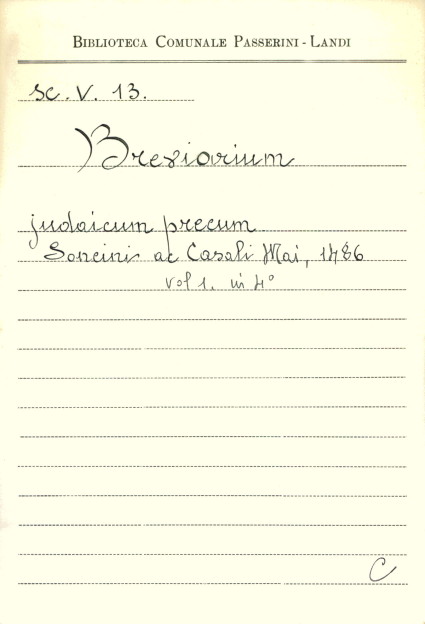 BIBLIOTECA COMUNALE PASSERINI - LANDI
Sc. V. 13.
Breviarium
judaicum precum
Soncini ac Casali Mai, 1486
vol 1. in 4°
C